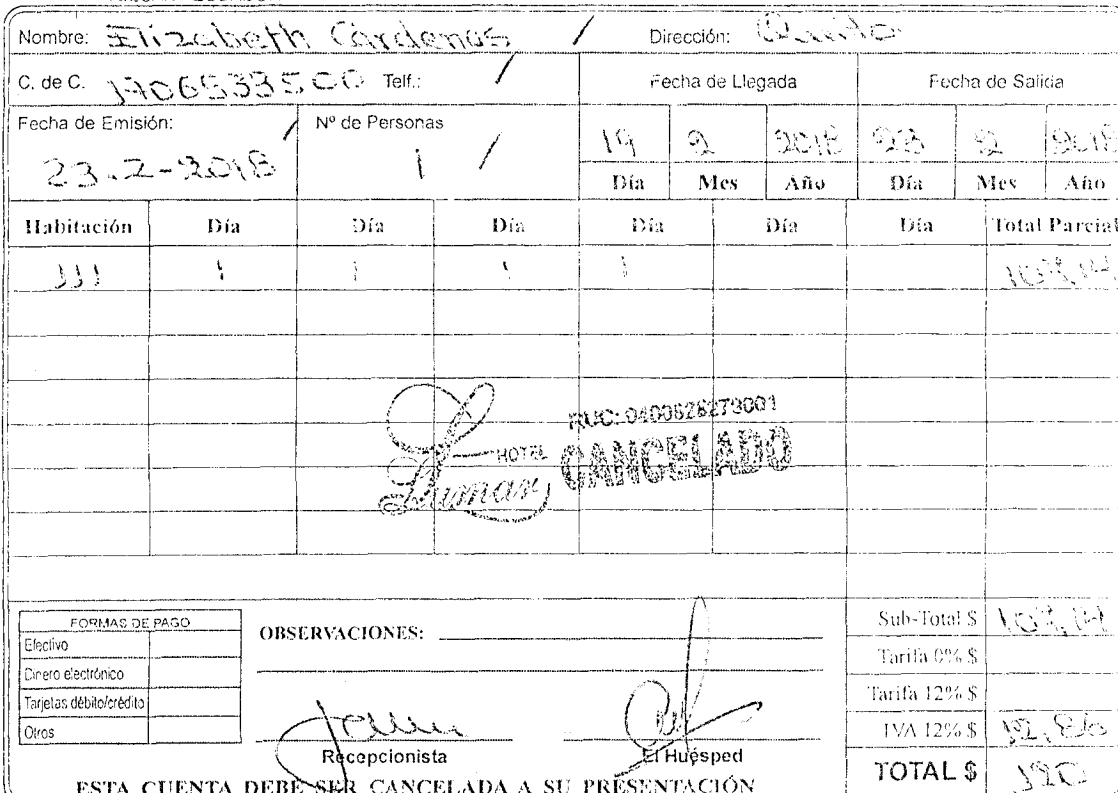 Nombre: Elizabeth Cárdenas / Dirección: Quito
C. de C. 1706533500 Telf.: / Fecha de Llegada Fecha de Salida
Fecha de Emisión: / Nº de Personas
23-2-2018 1 / 19 2 2018 23 2 2018
Día Mes Año Día Mes Año
Habitación Día Día Día Día Día Día Total Parcial
111 1 1 1 1 107,14
RUC: 0400626279001
HOTEL CANCELADO
Lumar
FORMAS DE PAGO
Efectivo
Dinero electrónico
Tarjetas débito/crédito
Otros
OBSERVACIONES:
Recepcionista El Huésped
Sub-Total $ 107,14
Tarifa 0% $
Tarifa 12% $
IVA 12% $ 12,86
TOTAL $ 120
ESTA CUENTA DEBE SER CANCELADA A SU PRESENTACIÓN